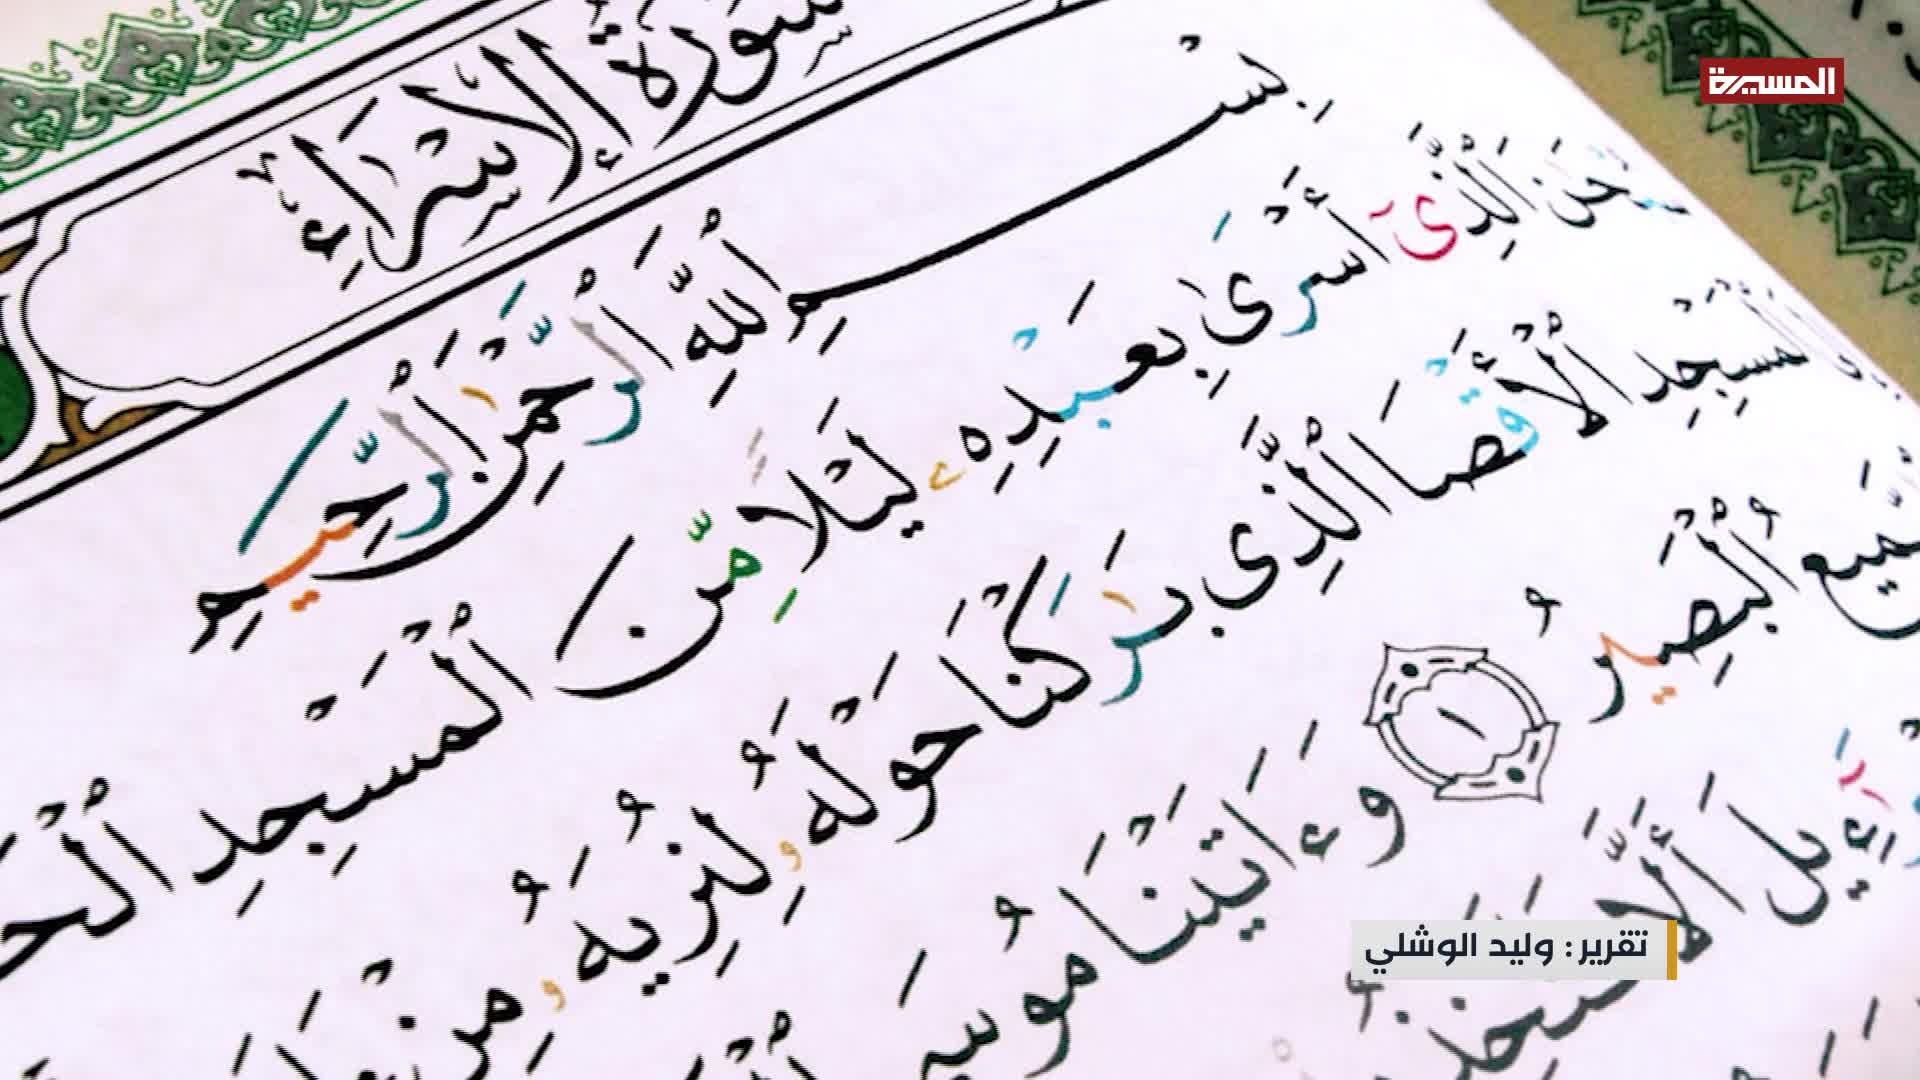 المسيرة
سُورَةُ الإِسْرَاءِ
بِسْمِ اللَّهِ الرَّحْمَٰنِ الرَّحِيمِ
الَّذِىٓ أَسْرَىٰ بِعَبْدِهِۦ لَيْلًا مِّنَ الْمَسْجِدِ
الْمَسْجِدِ الْأَقْصَا الَّذِى بَٰرَكْنَا حَوْلَهُۥ لِنُرِيَهُۥ مِنْ
الْبَصِيرُ ١ وَءَاتَيْنَا مُوسَى
أَلَّا
تقرير: وليد الوشلي